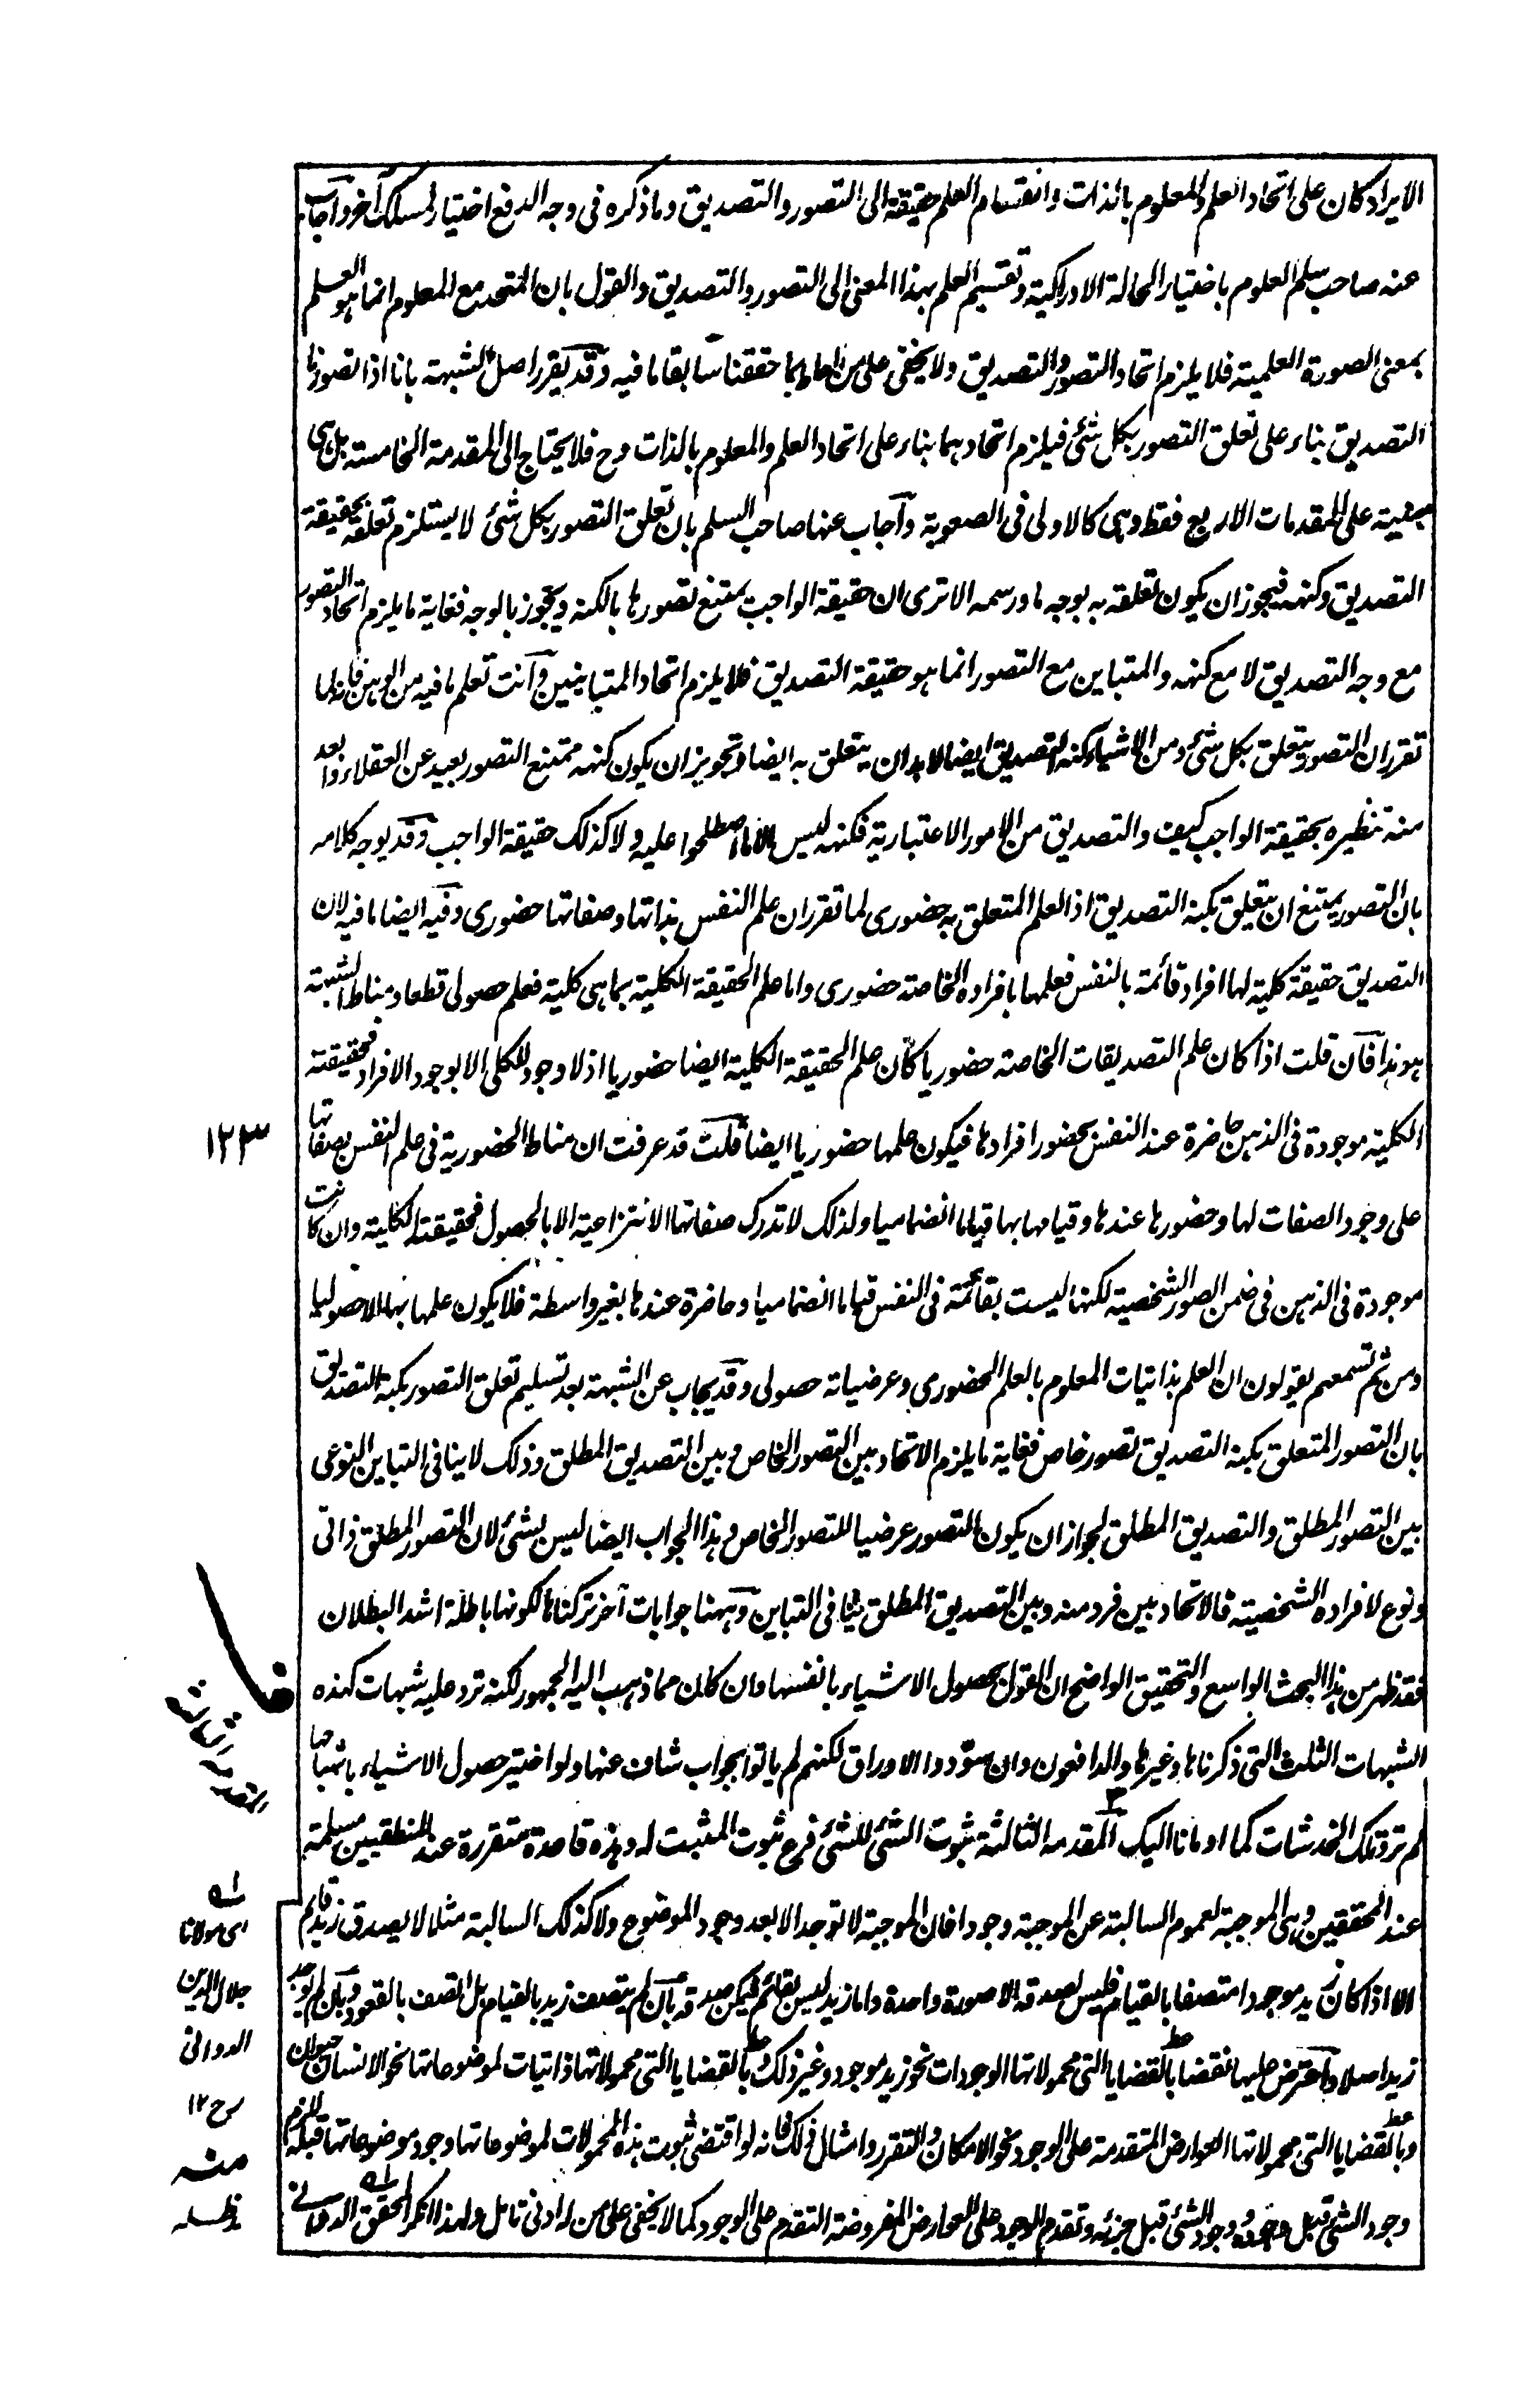 الايراد كان على اتحاد العلم والمعلوم بالذات وانقسام العلم حقيقة الى التصور والتصديق وما ذكره فى وجه الدفع اختيار لمسلك آخر واجاب
عنه صاحب سلم العلوم باختيار الحالة الادراكية وتقسيم العلم بهذا المعنى الى التصور والتصديق والقول بان المتحد مع المعلوم انما هو العلم
بمعنى الصورة العلمية فلا يلزم اتحاد التصور والتصديق ولا يخفى على من احاط بما حققنا سابقا ما فيه وقد يقرر اصل الشبهة بانا اذا تصورنا
التصديق بناء على تعلق التصور بكل شئ فيلزم اتحادهما بناء على اتحاد العلم والمعلوم بالذات وح فلا يحتاج الى المقدمة الخامسة بل هى
مبنية على المقدمات الاربع فقط وهى كالاولى فى الصعوبة وأجاب عنها صاحب السلم بان تعلق التصور بكل شئ لا يستلزم تعلقه بحقيقة
التصديق وكنهه فيجوز ان يكون تعلقه به بوجه ما ورسمه الا ترى ان حقيقة الواجب يمتنع تصورها بالكنه ويجوز بالوجه فغاية ما يلزم اتحاد التصور
مع وجه التصديق لا مع كنهه والمتباين مع التصور انما هو حقيقة التصديق فلا يلزم اتحاد المتباينين وأنت تعلم ما فيه من الوهن فانه لما
تقرر ان التصور يتعلق بكل شئ ومن الاشياء كنه التصديق ايضا لابد ان يتعلق به ايضا وتجويز ان يكون كنهه ممتنع التصور بعيد عن العقلاء وابعد
منه تنظيره بحقيقة الواجب كيف والتصديق من الامور الاعتبارية فكنهه ليس الا ما اصطلحوا عليه ولا كذلك حقيقة الواجب وقد يوجه كلامه
بان التصور يمتنع ان يتعلق بكنه التصديق اذ العلم المتعلق به حضورى لما تقرر ان علم النفس بذاتها وصفاتها حضورى وفيه ايضا ما فيه لان
التصديق حقيقة كلية لها افراد قائمة بالنفس فعلمها بافراده الخاصة حضورى واما علم الحقيقة الكلية بما هى كلية فعلم حصولى قطعا ومناط الشبهة
هو هذا فان قلت اذا كان علم التصديقات الخاصة حضوريا كان علم الحقيقة الكلية ايضا حضوريا اذ لا وجود للكلى الا بوجود الافراد فحقيقته
الكلية موجودة فى الذهن حاضرة عند النفس بحضور افرادها فيكون علمها حضوريا ايضا قلت قد عرفت ان مناط الحضورية فى علم النفس بصفاتها
على وجود الصفات لها وحضورها عندها وقيامها بها قياما انضماميا ولذلك لا تدرك صفاتها الانتزاعية الا بالحصول فحقيقته الكلية وان كانت
موجودة فى الذهن فى ضمن الصور الشخصية لكنها ليست بقائمة فى النفس قياما انضماميا وحاضرة عندها بغير واسطة فلا يكون علمها بها الا حصوليا
ومن ثم تسمعهم يقولون ان العلم بذاتيات المعلوم بالعلم الحضورى وعرضياته حصولى وقد يجاب عن الشبهة بعد تسليم تعلق التصور بكنه التصديق
بان التصور المتعلق بكنه التصديق تصور خاص فغاية ما يلزم الاتحاد بين التصور الخاص وبين التصديق المطلق وذلك لا ينافى التباين النوعى
بين التصور المطلق والتصديق المطلق لجواز ان يكون التصور عرضيا للتصور الخاص وهذا الجواب ايضا ليس بشئ لان التصور المطلق ذاتى
ونوع لافراده الشخصية فالاتحاد بين فرد منه وبين التصديق المطلق ينافى التباين وههنا جوابات آخر تركناها لكونها باطلة اشد البطلان
فقد ظهر من هذا البحث الواسع والتحقيق الواضح ان القول بحصول الاشياء بانفسها وان كان مما ذهب اليه الجمهور لكنه ترد عليه شبهات كهذه
الشبهات الثلث التى ذكرناها وغيرها والدافعون وان سودوا الاوراق لكنهم لم ياتوا بجواب شاف عنها ولو اختير حصول الاشياء باشباحها
لم ترد تلك الخدشات كما اومانا اليك المقدمة الثالثة ثبوت الشئ للشئ فرع ثبوت المثبت له وهذه قاعدة متقررة عند المنطقيين مسلمة
عند المحققين وهى الموجبة لعموم السالبة عن الموجبة وجودا فان الموجبة لا توجد الا بعد وجود الموضوع ولا كذلك السالبة مثلا لا يصدق زيد قائم
الا اذا كان زيد موجودا متصفا بالقيام فليس لصدقه الا صورة واحدة واما زيد ليس بقائم فيمكن صدقه بان لم يتصف زيد بالقيام بل اتصف بالقعود وبان لم يوجد
زيد اصلا واعترض عليها نقضا بالقضايا التى محمولاتها الوجودات نحو زيد موجود وغير ذلك وبالقضايا التى محمولاتها ذاتيات لموضوعاتها نحو الانسان حيوان
وبالقضايا التى محمولاتها العوارض المتقدمة على الوجود نحو الامكان والتقرر وامثال ذلك فانه لو اقتضى ثبوت هذه المحمولات لموضوعاتها وجود موضوعاتها قبله للزم
وجود الشئ قبل وجوده ووجود الشئ قبل جزئه وتقدم الوجود على العوارض المفروضة التقدم على الوجود كما لا يخفى على من له ادنى تامل ولهذا انكر المحقق الدوانى
١٢٣
ف
المقدمة الثالثة
اى مولانا
جلال الدين
الدوانى
رح ١٢
منه
مدظله